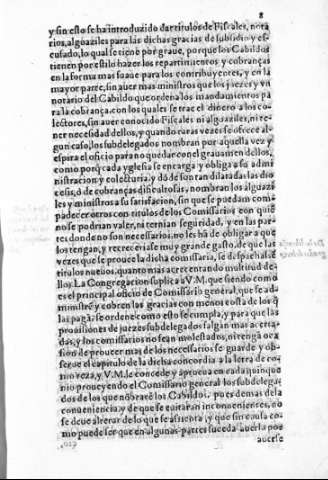 8
y sin esto se ha introduzido dar titulos de Fiscales, nota
rios, algoaziles para las dichas gracias de subsidio y es-
cusado, lo qual se tiene por graue, porque los Cabildos
tienen por estilo hazer los repartimientos y cobranças
en la forma mas suaue para los contribuyentes, y en la
mayor parte, sin auer mas ministros que los juezes y vn
notario del Cabildo que ordena los mandamientos pa
ra la cobrança, con los quales se trae el dinero a los co-
lectores, sin auer conocido Fiscales ni algoaziles, ni te-
ner necesidad dellos, y quando raras vezes se ofrece al-
gun caso, los subdelegados nombran por aquella vez y
espira el oficio para no quedar con el grauamen dellos,
como porq̃ cada yglesia se encarga y obliga a su admi
nistracion y colecturia, y dõde son tan dilatadas las dio
cesis, õ de cobranças dificultosas, nombran los alguazi
les y ministros a su satisfacion, sin que se puedam com-
padecer otros con titulos de los Comissarios con quiẽ
no se podrian valer, ni ternian seguridad, y en las par-
tes donde no son necessarios, no se les hà de obligar a que
los tengan, y recreceriase muy grande gasto, de que las
vezes que se prouee la dicha comissaria, se despachasẽ
titulos nueuos, quanto mas acrecentando multitud de-
llos. La Congregacion suplica a V.M. que siendo como
es el principal oficio de Comissario general, que se ad-
ministrẽ y cobren las gracias con menos costa de los q̃
las pagã, se ordene como esto se cumpla, y para que las
prouisiones de juezes subdelegados salgan mas acerta-
das, y los comissarios no sean molestados, ni tengã oca
sion de proueer mas de los necessarios se guarde y ob-
serue el capitulo de la dicha concordia a la letra de co-
mo reza, y V.M. le concede y aprueua en cada quinque
nio proueyendo el Comissario general los subdelega-
dos de los que nõbrarẽ los Cabildos, pues demas de la
conueniencia, y de que se euitaran inconuenientes, no
se deue alterar de lo que se assienta, y que sin causa co-
mo puede ser que en algunas partes suceda auerla por
auerse